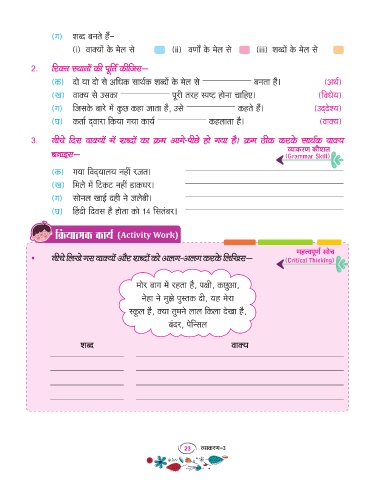 (ग) शब्द बनते हैं–
(i) वाक्यों के मेल से (ii) वर्णों के मेल से (iii) शब्दों के मेल से
2. रिक्त स्थानों की पूर्ति कीजिए–
(क) दो या दो से अधिक सार्थक शब्दों के मेल से बनता है। (अर्थ)
(ख) वाक्य से उसका पूरी तरह स्पष्ट होना चाहिए। (विधेय)
(ग) जिसके बारे में कुछ कहा जाता है, उसे कहते हैं। (उद्देश्य)
(घ) कर्ता द्वारा किया गया कार्य कहलाता है। (वाक्य)
3. नीचे दिए वाक्यों में शब्दों का क्रम आगे-पीछे हो गया है। क्रम ठीक करके सार्थक वाक्य
बनाइए–
व्याकरण कौशल
(Grammar Skill)
(क) गया विद्यालय नहीं रजत।
(ख) मिले में टिकट नहीं डाकघर।
(ग) सोनल खाई दही ने जलेबी।
(घ) हिंदी दिवस है होता को 14 सितंबर।
क्रियात्मक कार्य (Activity Work)
महत्वपूर्ण सोच
(Critical Thinking)
• नीचे लिखे गए वाक्यों और शब्दों को अलग-अलग करके लिखिए–
मोर बाग में रहता है, पक्षी, कछुआ,
नेहा ने मुझे पुस्तक दी, यह मेरा
स्कूल है, क्या तुमने लाल किला देखा है,
बंदर, पेन्सिल
शब्द वाक्य
23 व्याकरण-3